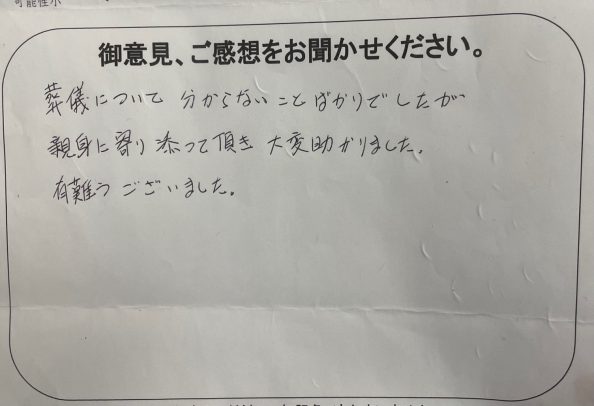 可能性小
御意見、ご感想をお聞かせください。
葬儀について 分からないことばかりでしたが
親身に寄り添って頂き 大変助かりました。
有難うございました。